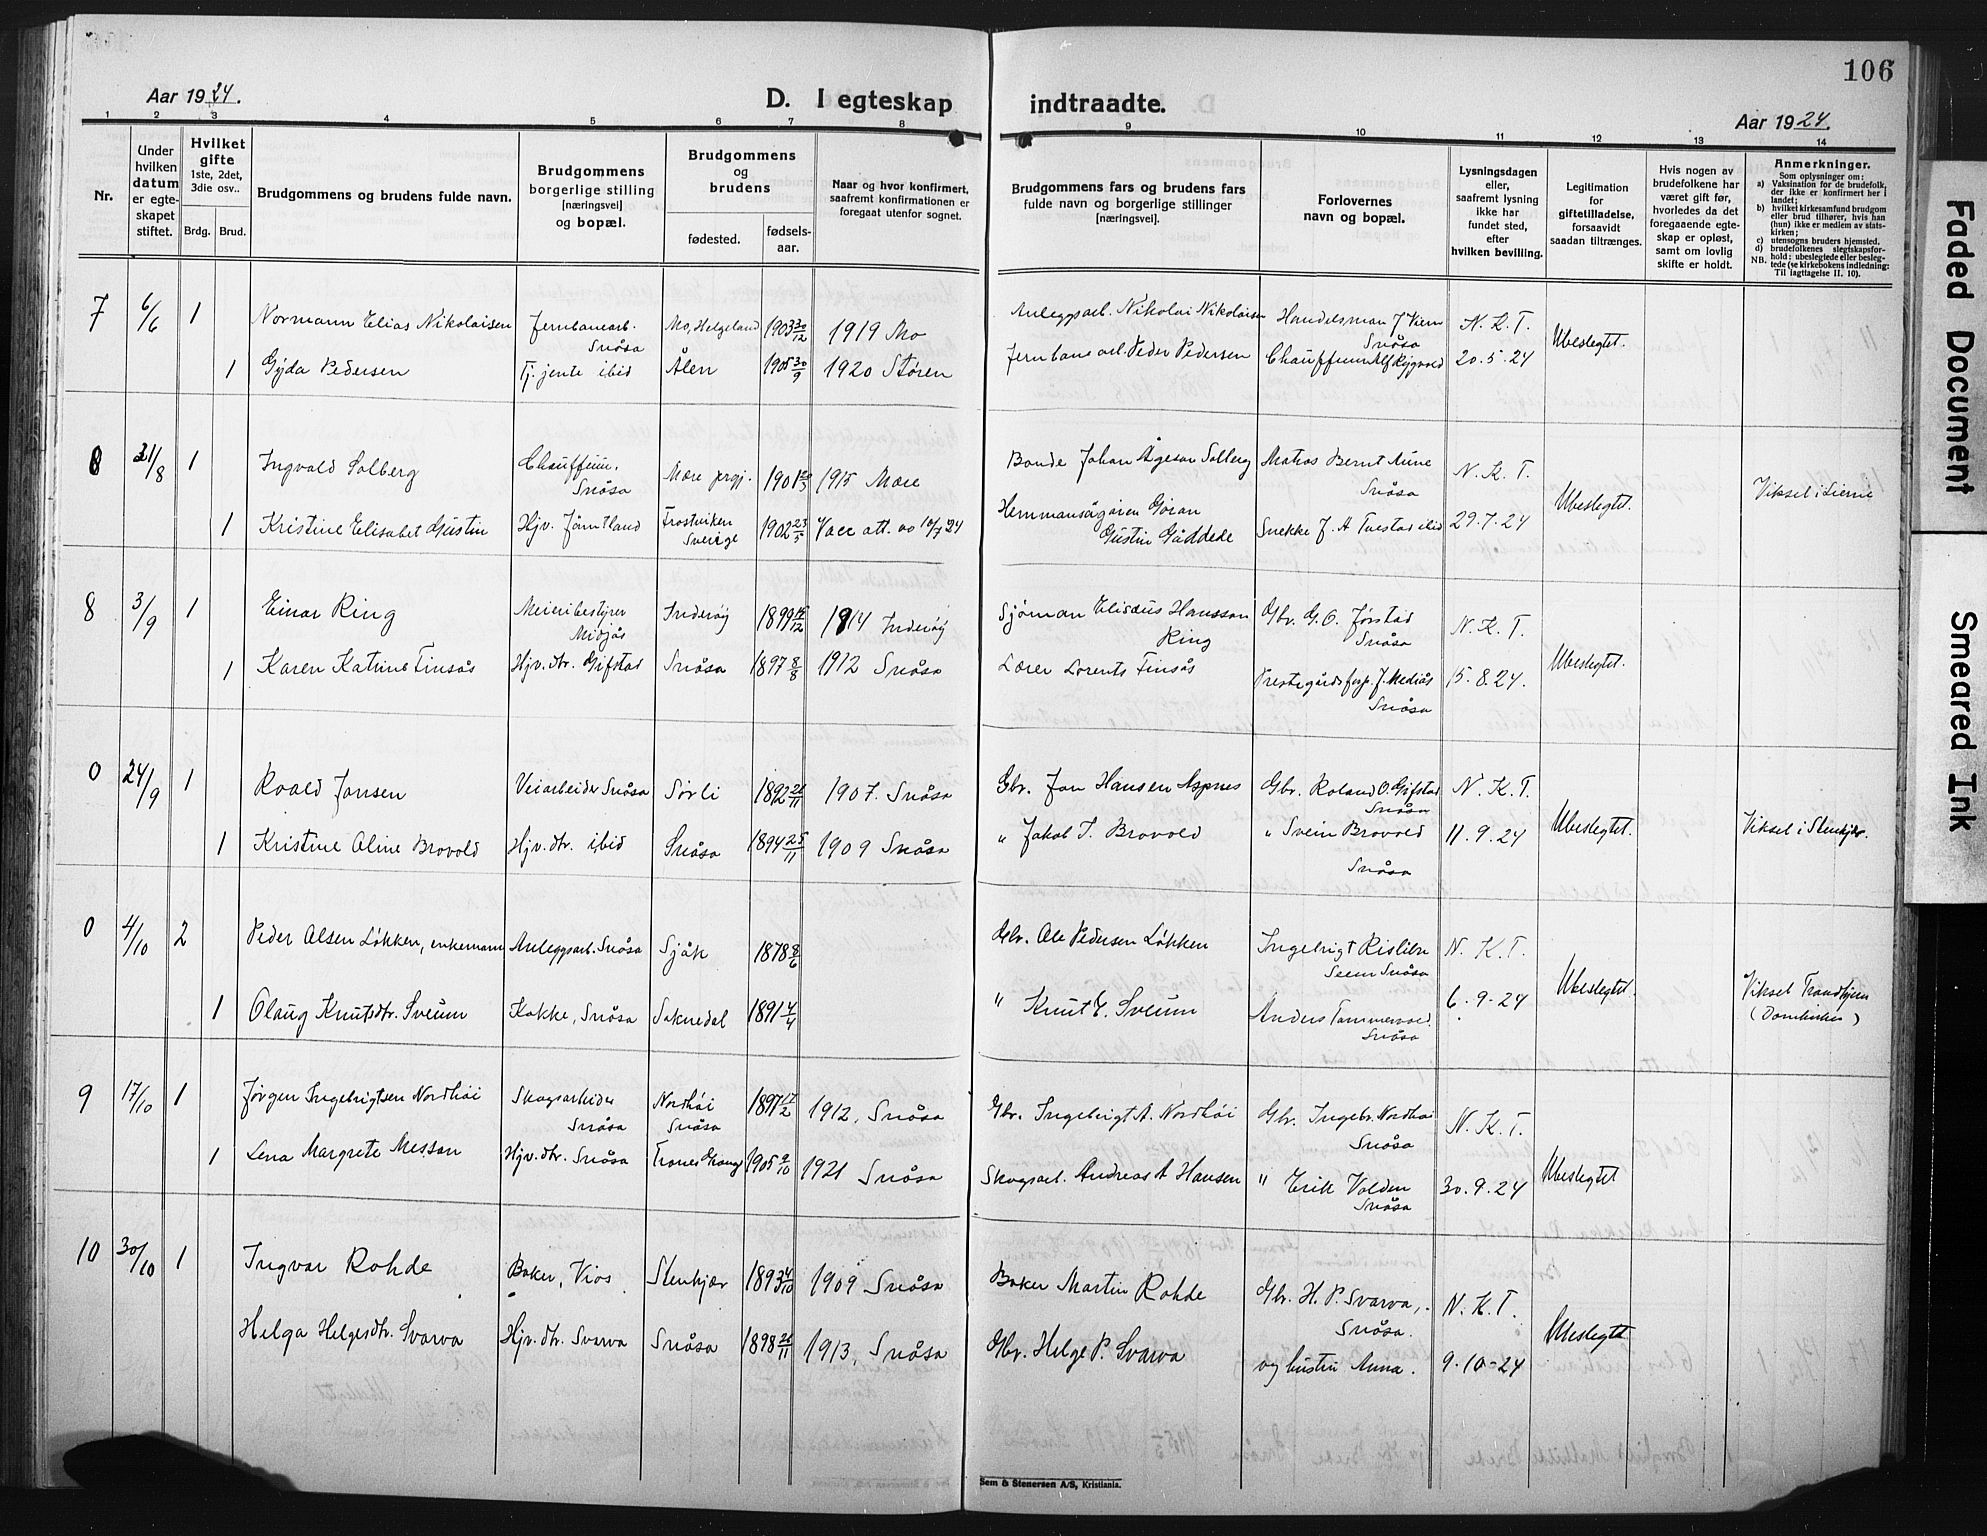 106
Aar 1924.
D. I egteskap indtraadte.
Aar 1924.
1 2 3 4 5 6 7 8 9 10 11 12 13 14
Nr.
Under hvilken datum er egteskapet stiftet.
Hvilket gifte 1ste, 2det, 3die osv..
Brdg. Brud.
Brudgommens og brudens fulde navn.
Brudgommens borgerlige stilling [næringsvei] og bopæl.
Brudgommens og brudens
fødested. fødselsaar.
Naar og hvor konfirmert, saafremt konfirmationen er foregaat utenfor sognet.
Brudgommens fars og brudens fars fulde navn og borgerlige stillinger [næringsvei].
Forlovernes navn og bopæl.
Lysningsdagen eller, saafremt lysning ikke har fundet sted, efter hvilken bevilling.
Legitimation for giftetilladelse, forsaavidt saadan tiltrænges.
Hvis nogen av brudefolkene har været gift før, hvorledes da det foregaaende egteskap er opløst, samt om lovlig skifte er holdt.
Anmerkninger.
Som oplysninger om:
a) Vaksination for de brudefolk, der ikke er konfirmert her i landet;
b) hvilket kirkesamfund brudgom eller brud tilhører, hvis han (hun) ikke er medlem av statskirken;
c) utensogns bruders hjemsted.
d) brudefolkenes slegtskapsforhold: ubeslegtede eller beslegtede (se kirkebokens indledning:
NB. Til Iagttagelse II. 10).
7 6/6 1 Normann Elias Nikolaisen Jernbanearb. Snåsa Mo, Helgeland 1903 30/12 1919 Mo Anleggsarb. Nikolai Nikolaisen Handelsman J Viem Snåsa N. K. T. Ubeslegtet.
1 Gyda Pedersen Tj. jente ibid Ålen 1905 30/9 1920 Støren Jernbanearb. Peder Pedersen 20. 5. 24
8 21/8 1 Ingvald Solberg Chauffeur, Snåsa Mære 1901 1915 Mære Bonde Johan Ågesen Solberg Matros Bernt Aune Snåsa N. K. T. Ubeslegtet. Viksel i Lierne
1 Kristine Elisabet Gustin Hjv. Jämtland Frostviken Sverige 1902 23/5 Vacc att. av 10/7 24 Hemmansägaren Göran Gustin Gäddede Snekke J. A Tvestad ibid 29. 7. 24
8 3/9 1 Einar Ring Meieribestyrer Midjås Inderøy 1899 1914 Inderøy Sjøman Elisæus Hansson Ring Gbr. G. O. Jørstad Snåsa N. K. T. Ubeslegtet.
1 Karen Katrine Finsås Hjv. dtr. Gifstad Snåsa 1897 8/8 1912 Snåsa Lærer Lorents Finsås Prestegårdsforp. J. Mediås Snåsa 15. 8. 24.
0 24/9 1 Roald Jansen Veiarbeider Snåsa Sørli 1892 26/11 1907. Snåsa Gbr. Jon Hansen Aspnes Gbr. Roland O. Gifstad Snåsa N. K. T. Ubeslegtet. Viksel i Stenkjær.
1 Kristine Oline Brovold Hjv. dtr. ibid Snåsa 1894 25/11 1909 Snåsa " Jakob T. Brovold " Svein Brovold Snåsa 11. 9. 24
0 4/10 2 Peder Olsen Løkken, enkemann Anleggsarb. Snåsa Sjåk 1878 8/6 Gbr. Ole Pedersen Løkken Ingebrigt Rislien Seem Snåsa N. K. T. Ubeslegtet. Viksel Trondhjem (Domkirken)
1 Olaug Knutsdtr. Sveum Kokke, Snåsa Soknedal 1891 4/4 " Knut E. Sveum Anders Tømmervold Snåsa 6. 9. 24
9 17/10 1 Jørgen Ingebrigtsen Nordhøi Skogsarbeider Snåsa Nordhøi Snåsa 1897 17/2 1912, Snåsa Gbr. Ingebrigt A. Nordhøi Gbr. Ingebr. Nordhøi Snåsa N. K. T. Ubeslegtet
1 Lena Margrete Messon Hjv. dtr. Snåsa Trones Grong 1905 9/10 1921 Snåsa Skogsarb. Andreas A Hansen " Erik Volden Snåsa 30. 9. 24
10 30/10 1 Ingvar Rohde Baker, Vios Stenkjær 1893 4/10 1909 Snåsa Baker Martin Rohde Gbr. H. P. Svarva, Snåsa. N. K. T. Ubeslegtet
Helga Helgesdtr. Svarva Hjv. dtr. Svarva Snåsa 1898 26/11 1913, Snåsa Gbr. Helge P. Svarva og hustru Anna. 9. 10 - 24
Sem & Stenersen A/S, Kristiania.
Faded Document
Smeared Ink